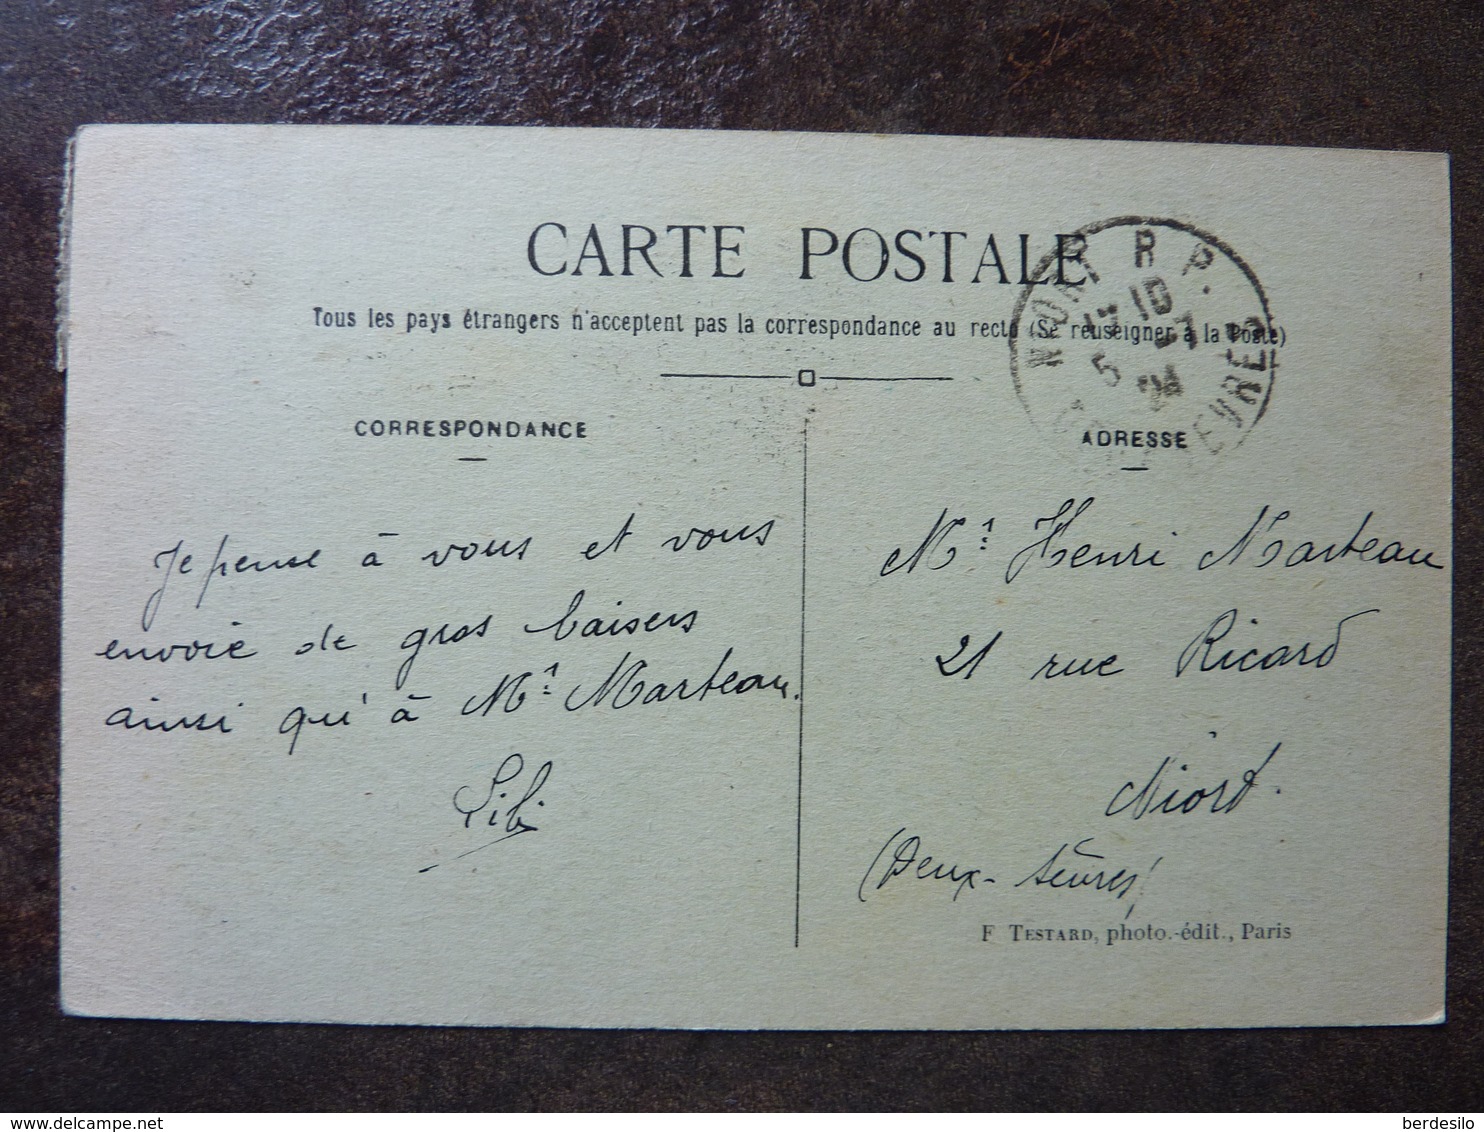 CARTE POSTALE
Tous les pays étrangers n'acceptent pas la correspondance au recto (Se renseigner à la Poste)
NIORT R.P.
17 10
5
24
SEVRES
CORRESPONDANCE
ADRESSE
Je pense à vous et vous
envoie de gros baisers
ainsi qu'à Mr Marteau.
Lili
Mr Henri Marteau
21 rue Ricard
Niort.
(Deux-Sèvres)
F TESTARD, photo.-édit., Paris
berdesilo